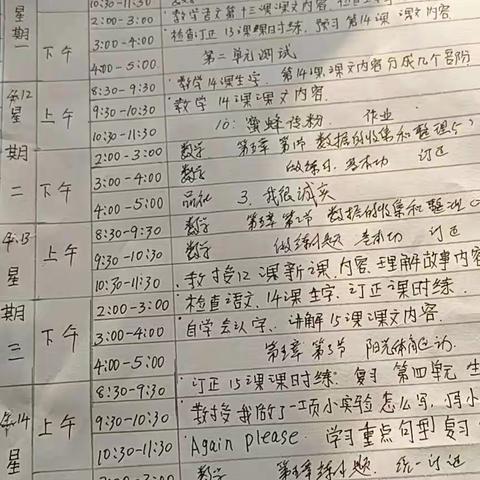 星期一
10:30-11:30
下午 2:00-3:00 教学语文第十三课课文内容
3:00-4:00 检查订正13课课时练、预习第14课课文内容
4:00-5:00 第二单元测试
4.12 星期二 上午 8:30-9:30 教学14课生字、第14课课文内容分成几个部份
9:30-10:30 教学14课课文内容.
10:30-11:30 10:蜜蜂 作业
下午 2:00-3:00 数学 第五章 第一节 数据的收集和整理(
3:00-4:00 数学 做练习、基本功 订正
4:00-5:00 品社 3、我很诚实
4.13 星期三 上午 8:30-9:30 数学 第五章 第二节 数据的收集和整理(
9:30-10:30 数学 做练习题 基本功 订正
10:30-11:30 教授12课新课、内容、理解故事内容
下午 2:00-3:00 检查语文、14课生字、订正课时练、
3:00-4:00 自学会认字、讲解15课课文内容.
4:00-5:00 第五章 第3节 阳光体育运动.
4.14 星 上午 8:30-9:30 订正15课课时练. 复习 第四单元 生
9:30-10:30 教授 我做了一项小实验 怎么写,
10:30-11:30 Again please. 学习重点句型 复习
2:00-3:00 数学 第五章练习题. 统一订正